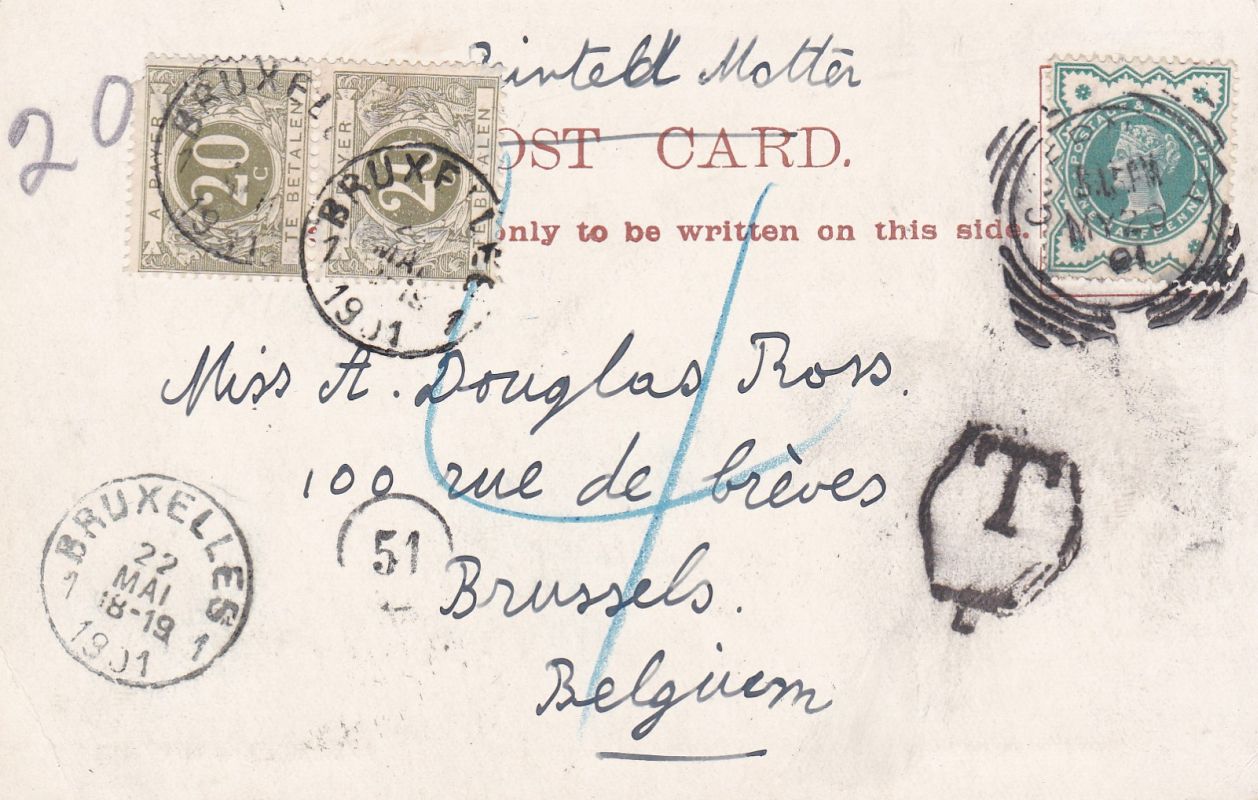 Printed Matter
20
POST CARD.
only to be written on this side.
A PAYER
20
C
TE BETALEN
A PAYER
20
TE BETALEN
BRUXEL
1901
BRUXELLES
1 MAI 1
1901
POSTAGE & REVENUE
HALF PENNY
MY 20
01
Miss A. Douglas Ross.
100 rue de brèves
Brussels.
Belgium
T
51
BRUXELLES
22
MAI
1 18-19 1
1901